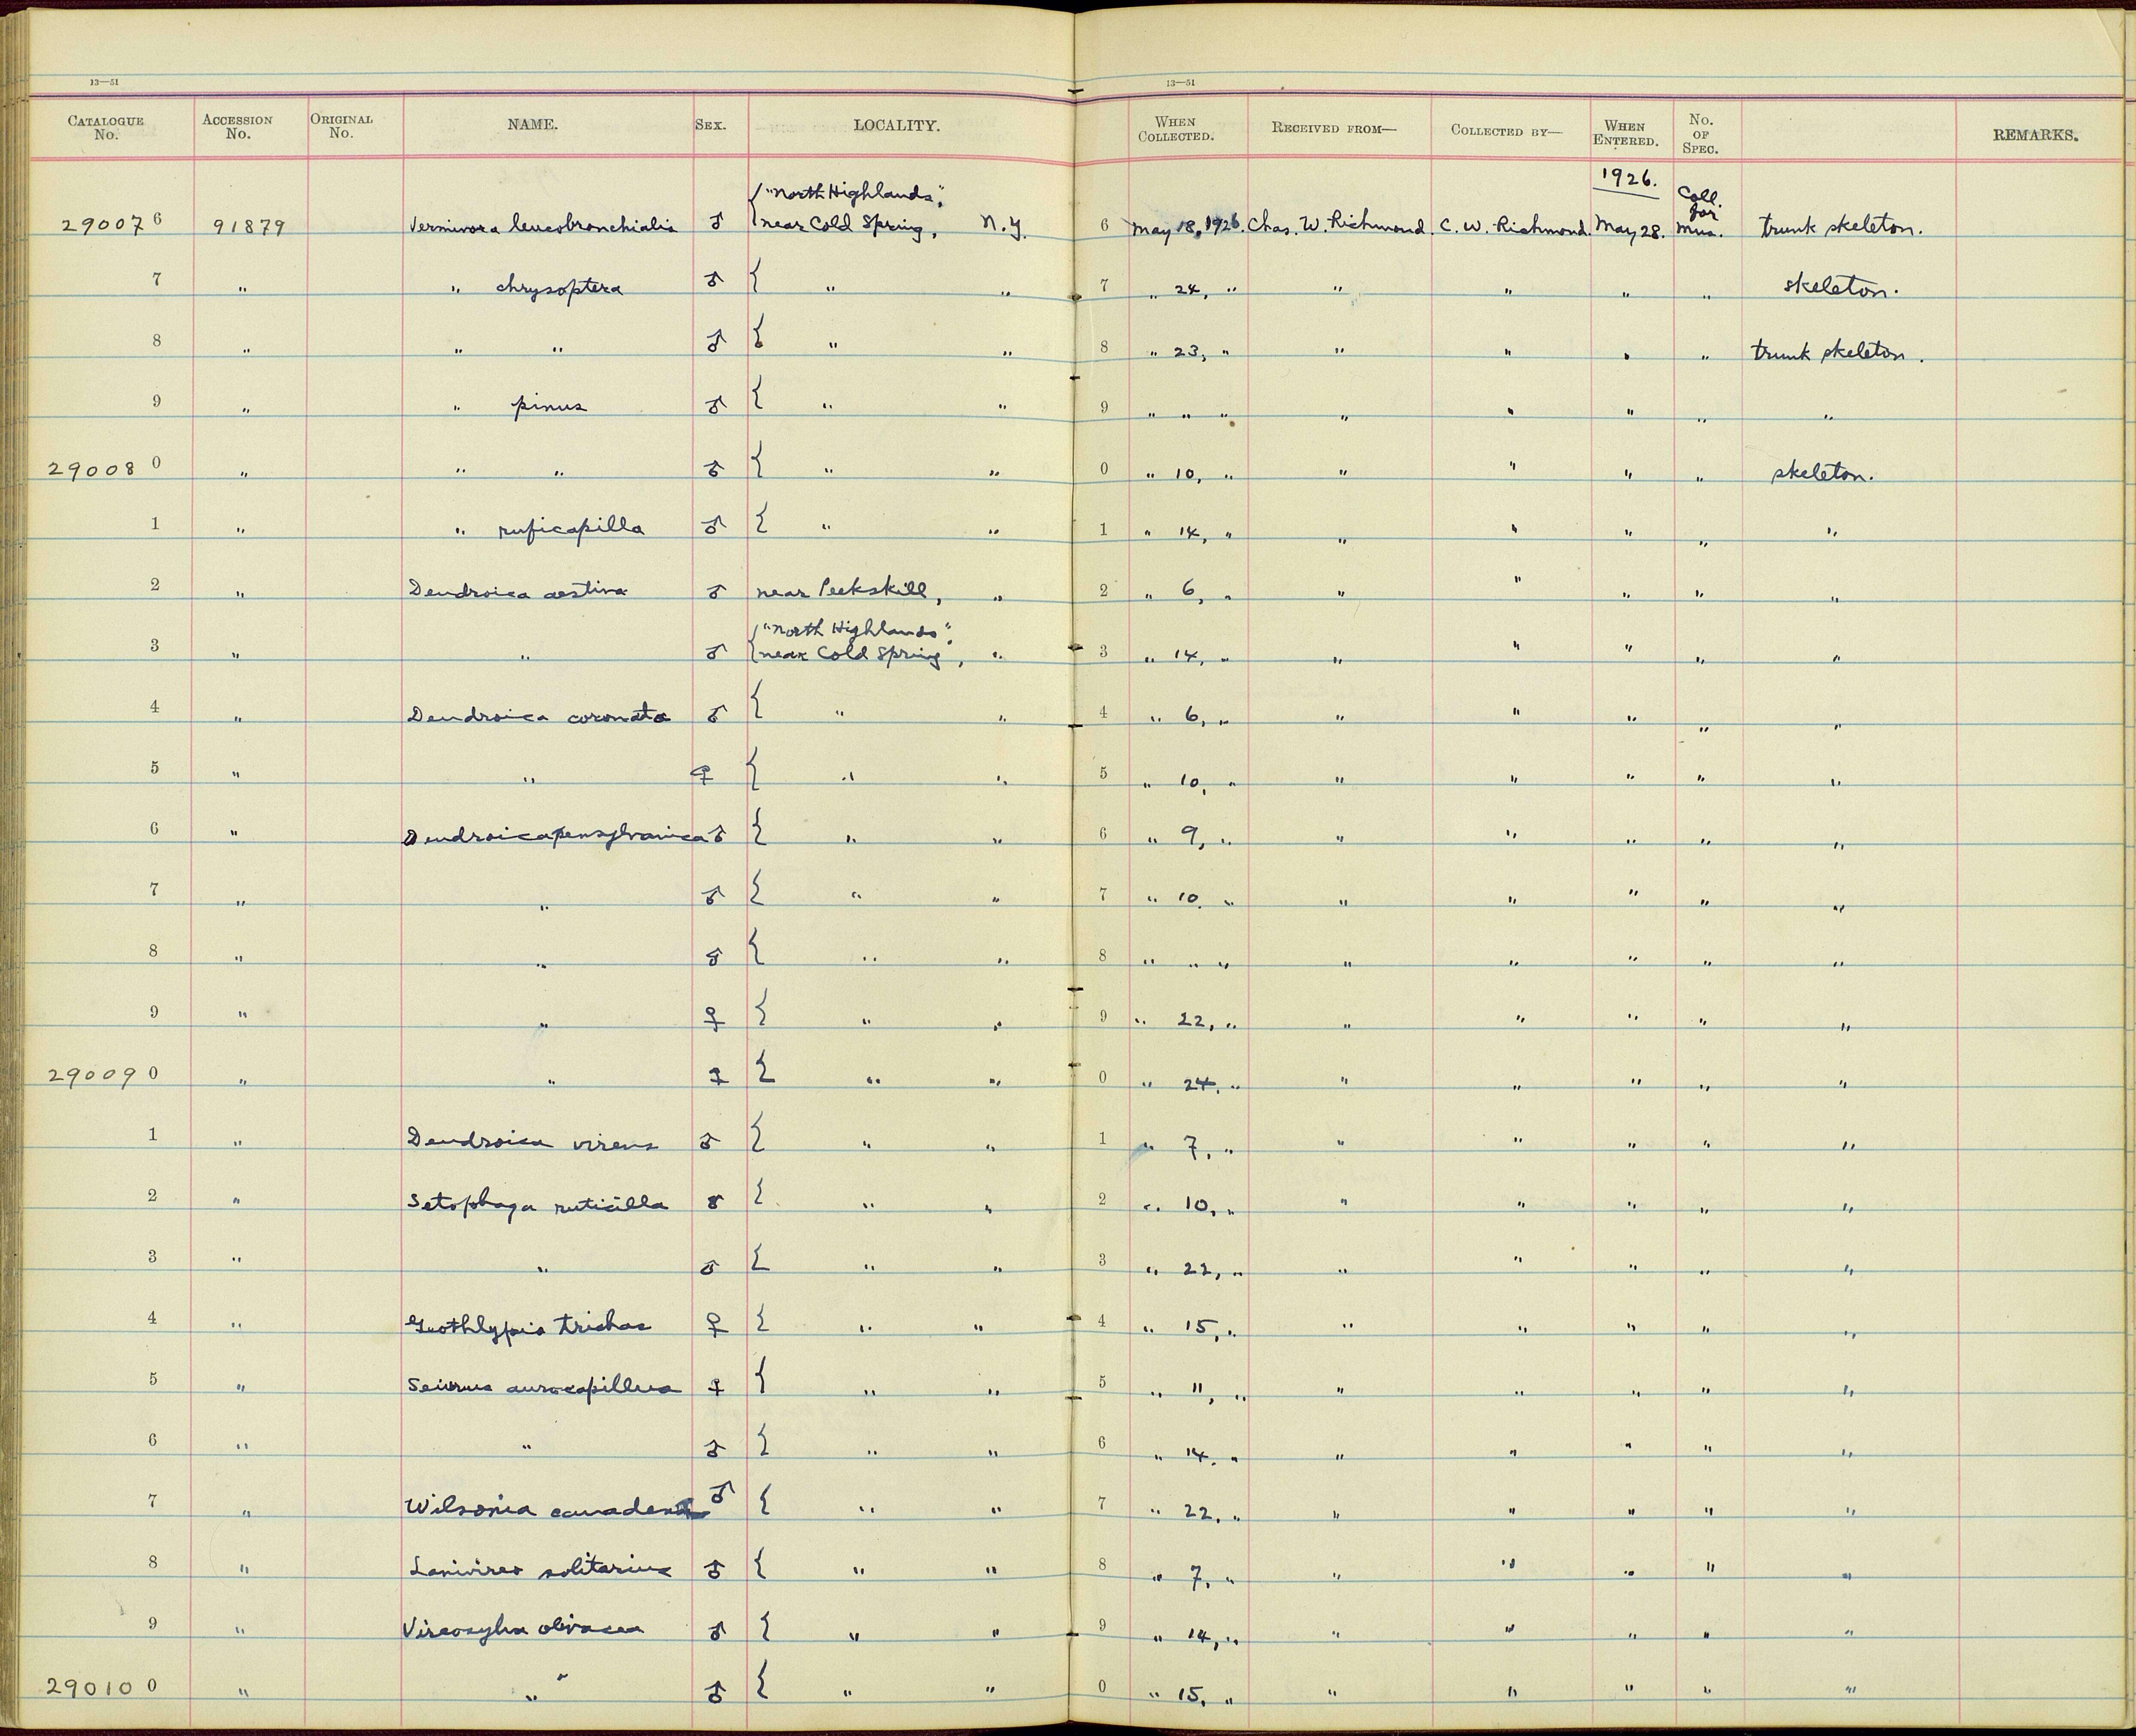 13—51
13—51
CATALOGUE No. ACCESSION No. ORIGINAL No. NAME. SEX. LOCALITY. WHEN COLLECTED. RECEIVED FROM— COLLECTED BY— WHEN ENTERED. No. OF SPEC. REMARKS.
1926.
290076 91879 Vermivora leucobronchialis ♂ { "North Highlands", near Cold Spring, N.Y. 6 May 18, 1926. Chas. W. Richmond. C. W. Richmond. May 28. Coll. for Mus. trunk skeleton.
7 " " chrysoptera ♂ { " " 7 " 24, " " " " " skeleton.
8 " " " ♂ { " " 8 " 23, " " " " " trunk skeleton.
9 " " pinus ♂ { " " 9 " " " " " " " "
290080 " " " ♂ { " " 0 " 10, " " " " " skeleton.
1 " " ruficapilla ♂ { " " 1 " 14, " " " " " "
2 " Dendroica aestiva ♂ near Peekskill, " 2 " 6, " " " " " "
3 " " ♂ { "North Highlands", near Cold Spring, " 3 " 14, " " " " " "
4 " Dendroica coronata ♂ { " " 4 " 6, " " " " " "
5 " " ♀ { " " 5 " 10, " " " " " "
6 " Dendroica pensylvanica ♂ { " " 6 " 9, " " " " " "
7 " " ♂ { " " 7 " 10. " " " " " "
8 " " ♂ { " " 8 " " " " " " " "
9 " " ♀ { " " 9 " 22, " " " " " "
290090 " " ♀ { " " 0 " 24, " " " " " "
1 " Dendroica virens ♂ { " " 1 " 7, " " " " " "
2 " Setophaga ruticilla ♂ { " " 2 " 10, " " " " " "
3 " " ♂ { " " 3 " 22, " " " " " "
4 " Geothlypis trichas ♀ { " " 4 " 15, " " " " " "
5 " Seiurus aurocapillus ♀ { " " 5 " 11, " " " " " "
6 " " ♂ { " " 6 " 14. " " " " " "
7 " Wilsonia ♂ { " " 7 " 22, " " " " " "
8 " Lanivireo solitarius ♂ { " " 8 " 7, " " " " " "
9 " Vireosylva olivacea ♂ { " " 9 " 14, " " " " " "
290100 " " ♂ { " " 0 " 15, " " " " " "